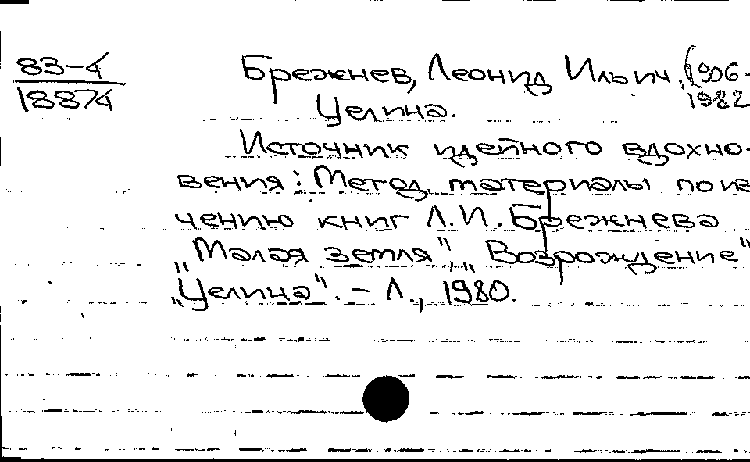 83-4
18874
Брежнев, Леонид Ильич, (1906-
1982
Целина.
Источник идейного вдохно-
вения: Метод. материалы по из
чению книг Л.И. Брежнева
„Малая земля", „Возрождение"
„Целина". – Л., 1980.